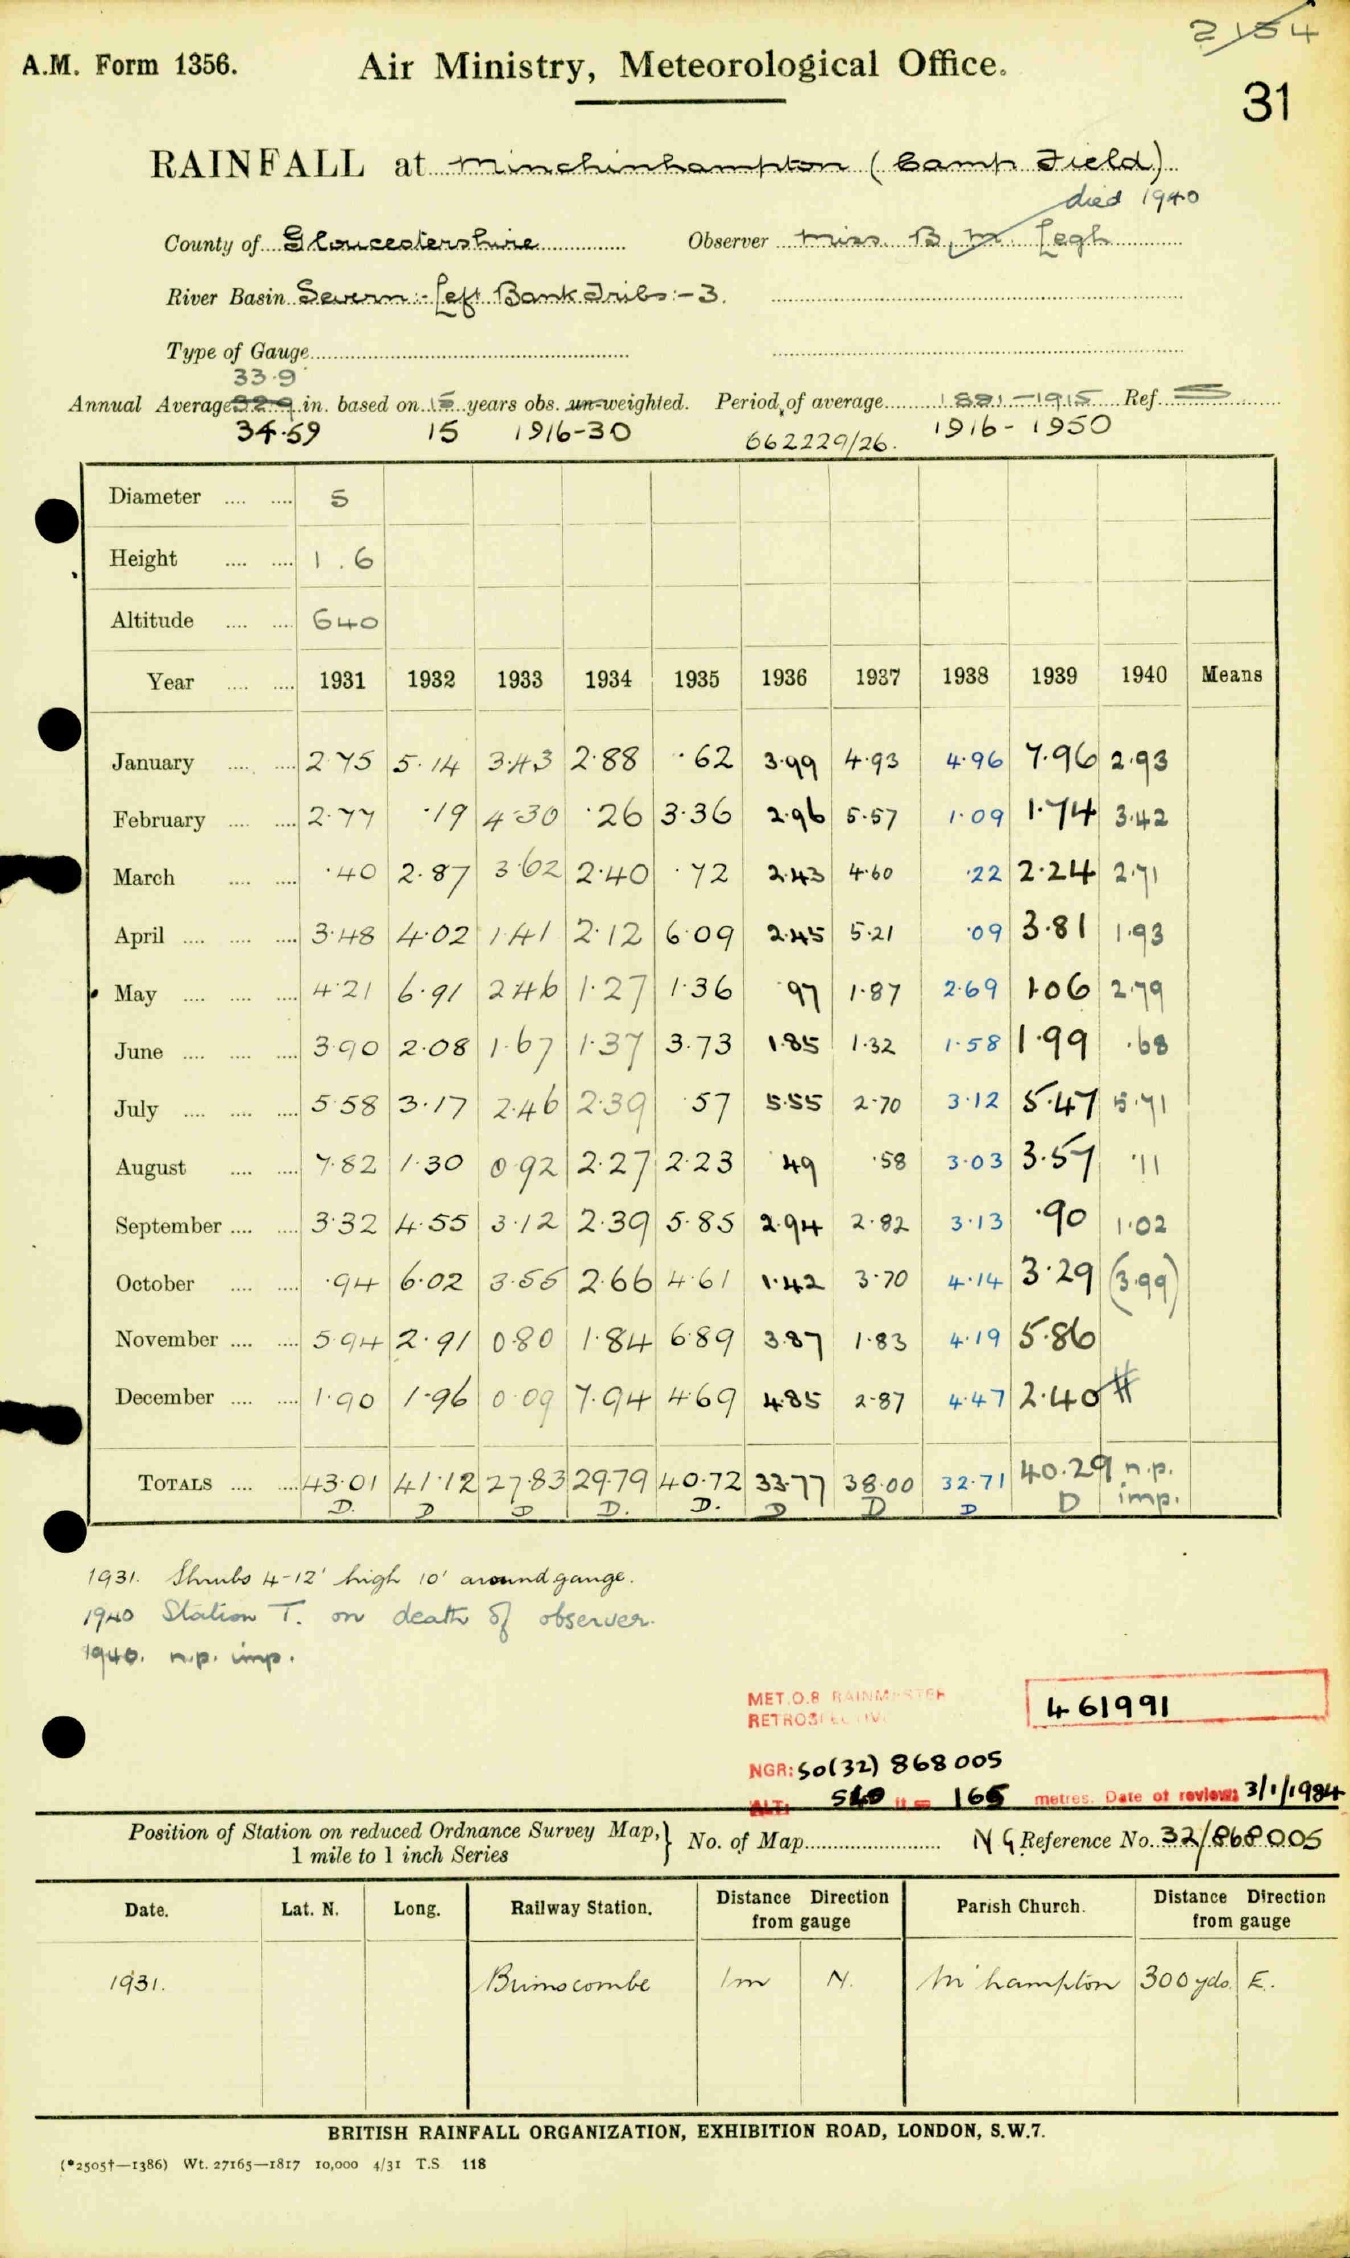 2154
A.M. Form 1356.
Air Ministry, Meteorological Office.
31
RAINFALL at Minchinhampton (Camp Field)
died 1940
County of Gloucestershire Observer Miss B. M. Legh
River Basin Severn:- Left Bank Tribs:- 3.
Type of Gauge
33.9
Annual Average 32.9 in. based on 15 years obs. un-weighted. Period of average 1881-1915 Ref. S
34.59 15 1916-30 662229/26. 1916-1950
Diameter 5
Height 1.6
Altitude 640
Year 1931 1932 1933 1934 1935 1936 1937 1938 1939 1940 Means
January 2.75 5.14 3.43 2.88 .62 3.99 4.93 4.96 7.96 2.93
February 2.77 .19 4.30 .26 3.36 2.96 5.57 1.09 1.74 3.42
March .40 2.87 3.62 2.40 .72 2.43 4.60 .22 2.24 2.71
April 3.48 4.02 1.41 2.12 6.09 2.45 5.21 .09 3.81 1.93
May 4.21 6.91 2.46 1.27 1.36 .97 1.87 2.69 1.06 2.79
June 3.90 2.08 1.67 1.37 3.73 1.85 1.32 1.58 1.99 .68
July 5.58 3.17 2.46 2.39 .57 5.55 2.70 3.12 5.47 5.71
August 7.82 1.30 0.92 2.27 2.23 .49 .58 3.03 3.57 .11
September 3.32 4.55 3.12 2.39 5.85 2.94 2.82 3.13 .90 1.02
October .94 6.02 3.55 2.66 4.61 1.42 3.70 4.14 3.29 (3.99)
November 5.94 2.91 0.80 1.84 6.89 3.87 1.83 4.19 5.86
December 1.90 1.96 0.09 7.94 4.69 4.85 2.87 4.47 2.40 #
TOTALS 43.01 41.12 27.83 29.79 40.72 33.77 38.00 32.71 40.29 n.p.
D. D D D. D. D D D D imp.
1931. Shrubs 4-12' high 10' around gauge.
1940 Station T. on death of observer.
1940. n.p. imp.
MET.O.8 RAINMASTER
RETROSPECTIVE
461991
NGR: SO(32) 868005
ALT: 540 ft = 165 metres. Date of review: 3/1/1984
Position of Station on reduced Ordnance Survey Map, } No. of Map NG Reference No. 32/868005
1 mile to 1 inch Series
Date. Lat. N. Long. Railway Station. Distance Direction from gauge Parish Church. Distance Direction from gauge
1931. Brimscombe 1m N. M'hampton 300 yds. E.
BRITISH RAINFALL ORGANIZATION, EXHIBITION ROAD, LONDON, S.W.7.
(*2505†—1386) Wt. 27165—1817 10,000 4/31 T.S. 118